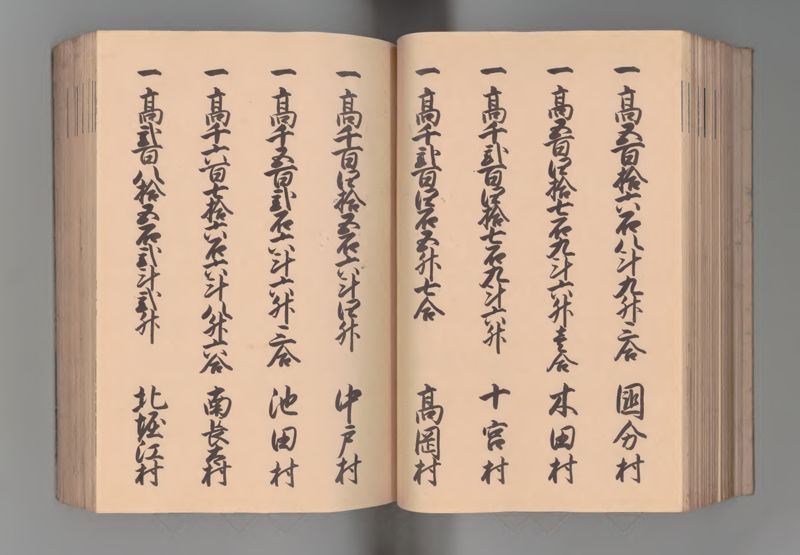 一高五百拾六石八斗九升二合 國分村
一高五百四拾七石九斗六升壱合 木田村
一高千弐百四拾七石九斗六升 十宮村
一高千弐百四石五升七合 高岡村
一高千百四拾五石六斗四升 中戸村
一高千五百弐石六斗六升二合 池田村
一高千六百七拾六石六斗八升六合 南長太村
一高弐百八拾五石弐斗弐升 北堀江村